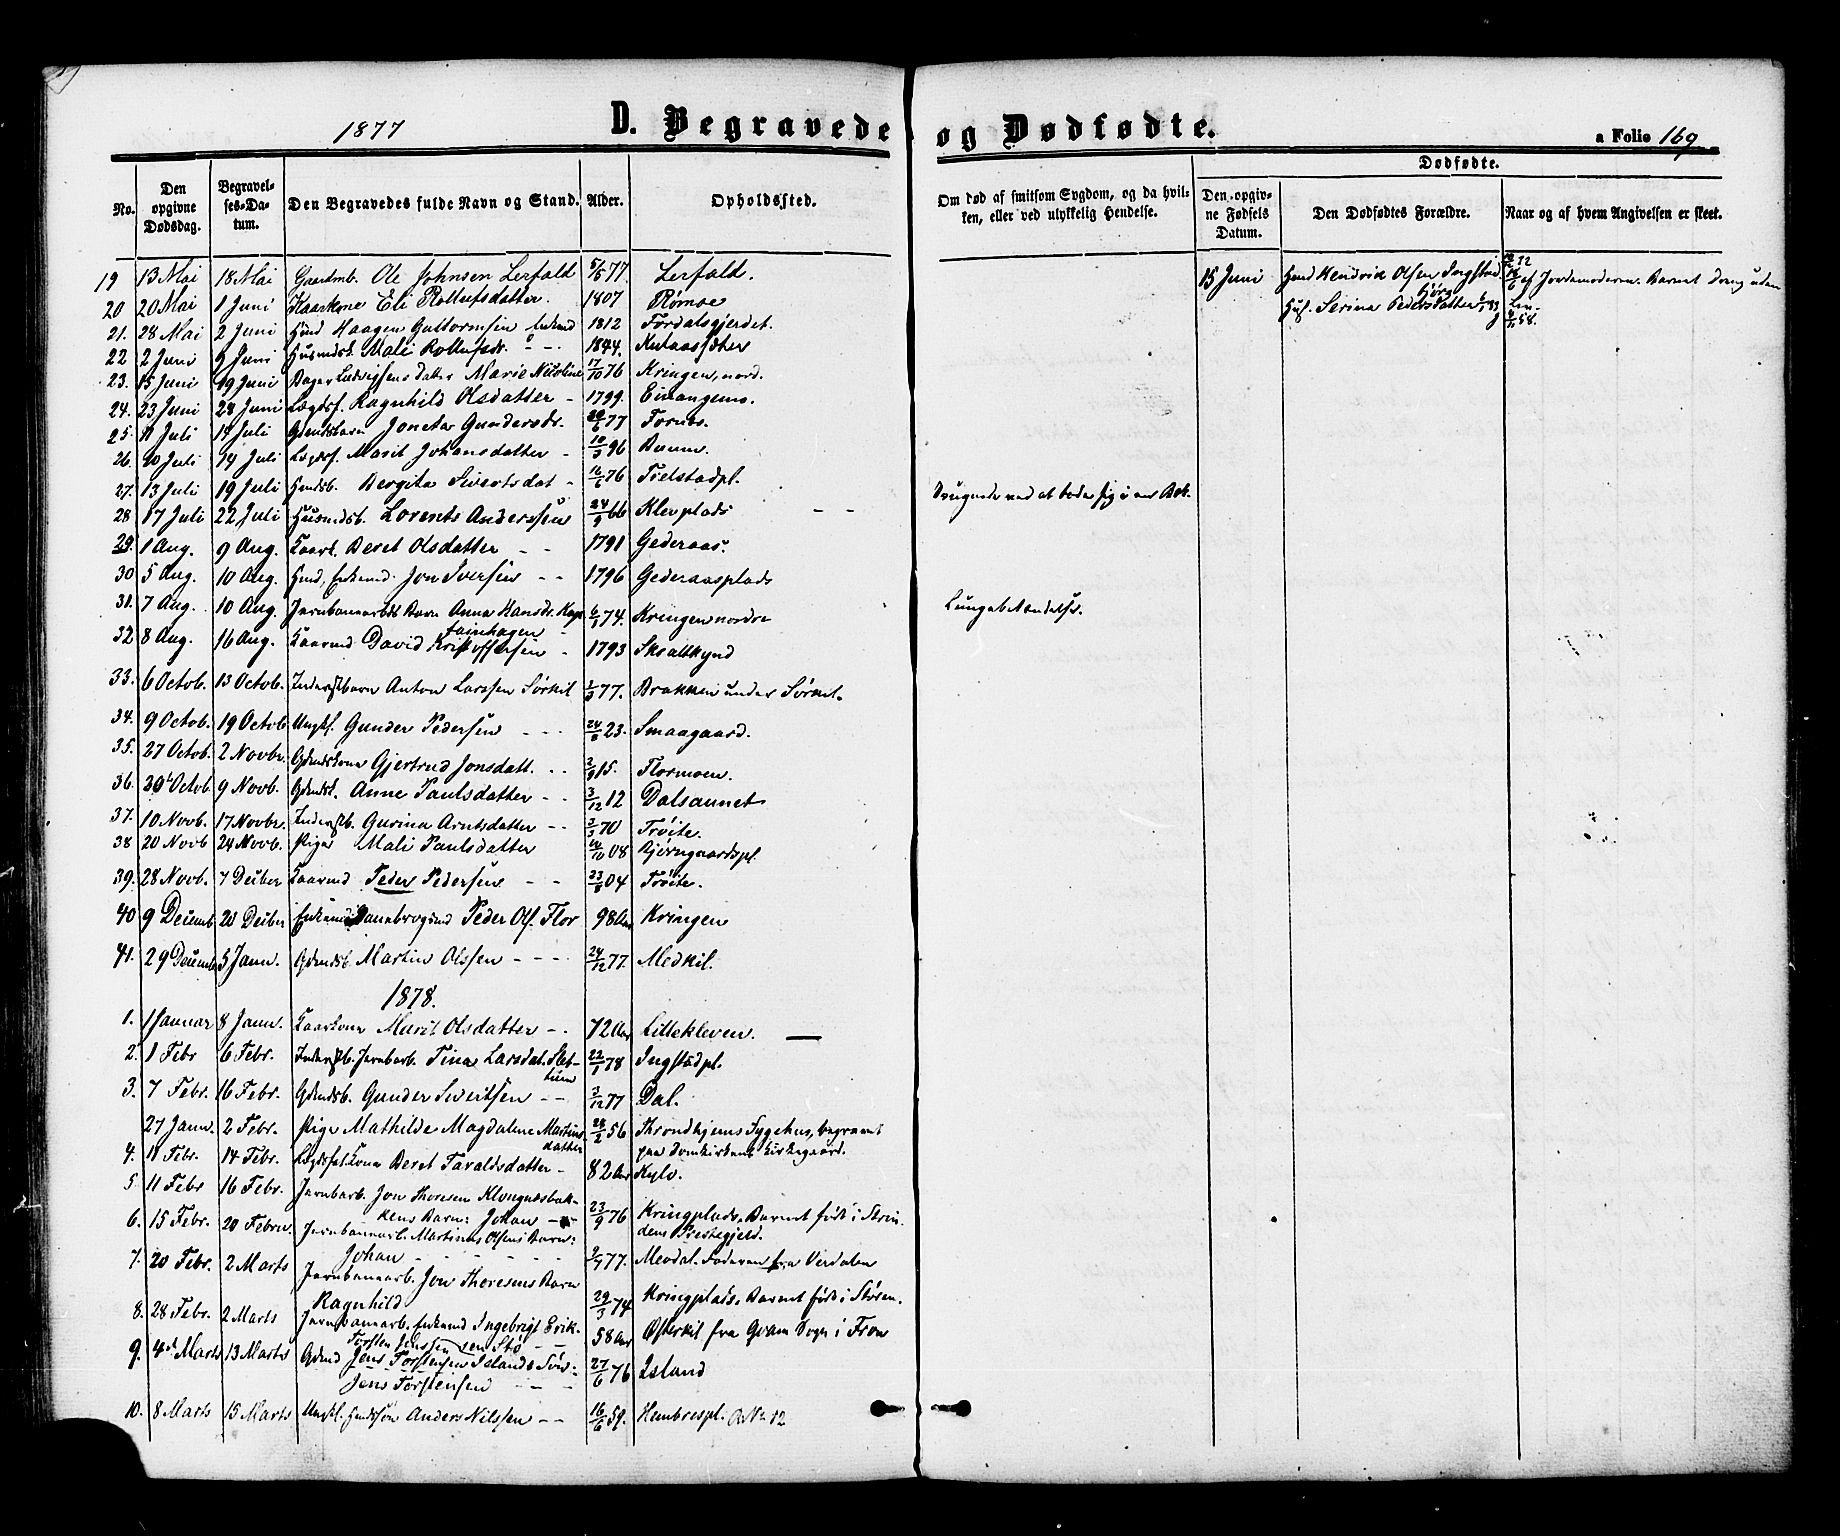 1877
D. Begravede og Dødfødte.
a Folio 169
No. Den opgivne Dødsdag. Begravelses-Datum. Den Begravedes fulde Navn og Stand. Alder. Opholdssted.
Om død af smitsom Sygdom, og da hvilken, eller ved ulykkelig Hendelse.
Dødfødte.
Den opgivne Fødsels Datum. Den Dødfødtes Forældre. Naar og af hvem Angivelsen er skeet.
19 13 Mai 18 Mai Gaardmb. Ole Johnsen Lerfald 5/6 77 Lerfald.
15 Juni Hmd Hendrik Olsen Ingstad
af Jordemoderen. Barnet Dreng uden
20 20 Mai 1 Juni Kaarkone Eli Rollufsdatter. 1807 Rømoe
Huf. Serina Pedersdatter
21. 28 Mai 2 Juni Hmd Haagen Guttormsen Enkemd 1812 Fordalsgjerdet.
22 2 Juni 9 Juni Husmdsk. Mali Rollufsdr. 1844. Kulaassæter
23. 15 Juni 19 Juni Bager Ludvigsens datter Marie Nicoline 17/10 76 Kringen, nord.
24. 23 Juni 28 Juni Lægdsf. Ragnhild Olsdatter 1799. Einangems.
25. 11 Juli 14 Juli Gdmdsbarn Joneta Gundersdr. 20/6 77 Fornes.
26. 10 Juli 14 Juli Lægdsf. Marit Johansdatter 10/3 96
27. 13 Juli 19 Juli Hmdsb. Bergita Sivertsdat 16/6 76 Tielstadpl.
28 17 Juli 22 Juli Husmdsb. Lorents Anderssen 24/9 66 Klevplads
Druknede ved at bade sig i en Bæk.
29. 1 Aug. 9 Aug. Kaark. Beret Olsdatter 1791 Gederaas.
30 5 Aug. 10 Aug. Hmd, Enkemd. Jon Iversen 1796 Gederaasplads
31. 7 Aug. 10 Aug. Jernbanearbds Barn Anna Hansdr. 6/1 74. Kringen nordre
Lungebetændelse.
32 8 Aug. 16 Aug. Kaarmd David Kristoffersen 1793
33. 6 Octob. 13 Octob. Inderstbarn Anton Larssen Sørkil 77. Brækken under Sørkil.
34. 9 Octob. 19 Octob Ungkl. Gunder Pedersen 24/8 23. Smaagaard.
35. 27 Octob. 2 Novbr. Gdmdskone Gjertrud Jonsdatt. 15. Flormoen.
36. 30 Octob 9 Novb. Gdmdsk. Anne Paulsdatter 3/12 12 Dalsaunet
37. 10 Novb. 17 Novbr. Inderstb. Gurina Arntsdatter 3/5 70 Trøite.
38 20 Novb 24 Novb. Pige Mali Paulsdatter 08 Bjørngaardspl.
39. 28 Novb. 7 Decber Kaarmd Peder Pedersen 23/8 04 Trøite.
40 9 Decemb 20 Decber Enkemd Dannebrogsmd Peder Ols. Flor 98 Aar Kringen
41. 29 Decemb 5 Janu. Gdmdsb. Martin Olssen 24/12 77. Medkil.
1878.
1. 1 Januar 8 Janu. Kaarkone Marit Olsdatter 72 Aar Lillekleven.
2. 1 Febr 6 Febr. Inderstb. Jernbarb. Tina Larsdat. Sletthun 22/1 78 Ingstadpl.
3. 7 Febr. 16 Febr. Gdmdsb. Gunder Sivertsen 3/12 77 Dal.
27 Janu. 2 Febr. Pige Mathilde Magdalene Martinsdatter 28/2 56 Throndhjems Sygehus, begravet
paa Domkirkens Kirkegaard.
4. 11 Febr. 14 Febr. Lægdsfat. Kone Beret Taraldsdatter 82 Aar Kylo.
5. 11 Febr 16 Febr. Jernbarb. Jon Thoresen Klongnesbakkens Barn: Johan 23/9 76 Kringplads. Barnet født i Strindens Prestegjeld.
6. 15 Febr. 20 Febru. Jernbanearb. Martinus Olsens Barn:
Johan 77. Meodal. Faderen fra Verdalen
7. 20 Febr. 2 Marts Jernbanearb. Jon Thoresens Barn
Ragnhild 29/3 74 Kringplads. Barnet født i Støren.
8. 28 Febr. 2 Marts Jernbanearb. Enkemd Ingebrigt Eriksen Stø 58 Aar Østerkil fra Qvam Sogn i Fron
9. 4de Marts 13 Marts Gdmd Jens Torstensen Islands Søn: 27/6 76 Island
Torsten Jenssen
Jens Torstensen
10. 8 Marts 15 Marts Ungkl. Hmdssøn Anders Nilssen 16/6 59. Hembrespl.